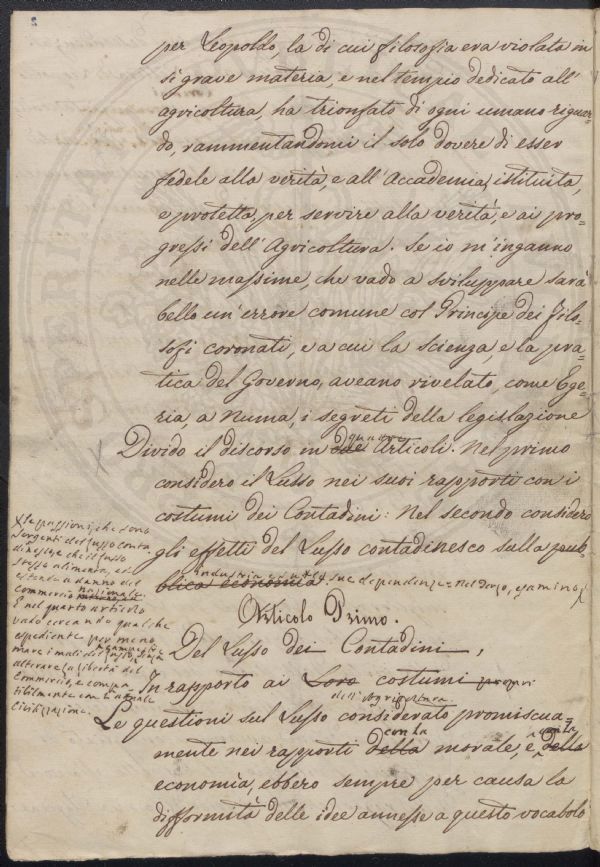 2
per Leopoldo, la di cui filosofia era violata in
sì grave materia, e nel tempio dedicato all'
agricoltura, ha trionfato di ogni umano riguar=
do, rammentandomi il solo dovere di esser
fedele alla verità, e all'Accademia, istituita,
e protetta, per servire alla verità, e ai pro=
gressi dell'Agricoltura. Se io m'inganno
nelle massime, che vado a sviluppare sarà
bello un'errore comune col Principe dei Filo=
sofi coronati, e a cui la scienza e la pra=
tica del Governo, aveano rivelato, come Ege=
ria, a Numa, i segreti della legislazione
quattro
Divido il discorso in due Articoli. Nel primo
considero il Lusso nei suoi rapporti con i
costumi dei Contadini: Nel secondo considero
gli effetti del Lusso contadinesco sulla pub=
industria e sue dipendenze = Nel terzo, esamino
blica economia.
X le passioni, che sono
sorgenti del lusso contadinesco
e che il lusso
stesso alimenta, ed
a danno del
commercio nazionale.
E nel quarto articolo
vado cercando qualche
espediente per meno=
mare i mali del lusso, senza
alterare la libertà del
Commercio, e compa=
tibilmente con la
Civilizzazione.
Articolo Primo.
Del Lusso dei Contadini,
In rapporto ai Loro costumi propri
dell'Agricoltura
Le questioni sul Lusso considerato promiscua=
con la con la
mente nei rapporti della morale, e della
economia, ebbero sempre per causa la
difformità delle idee annesse a questo vocabolo